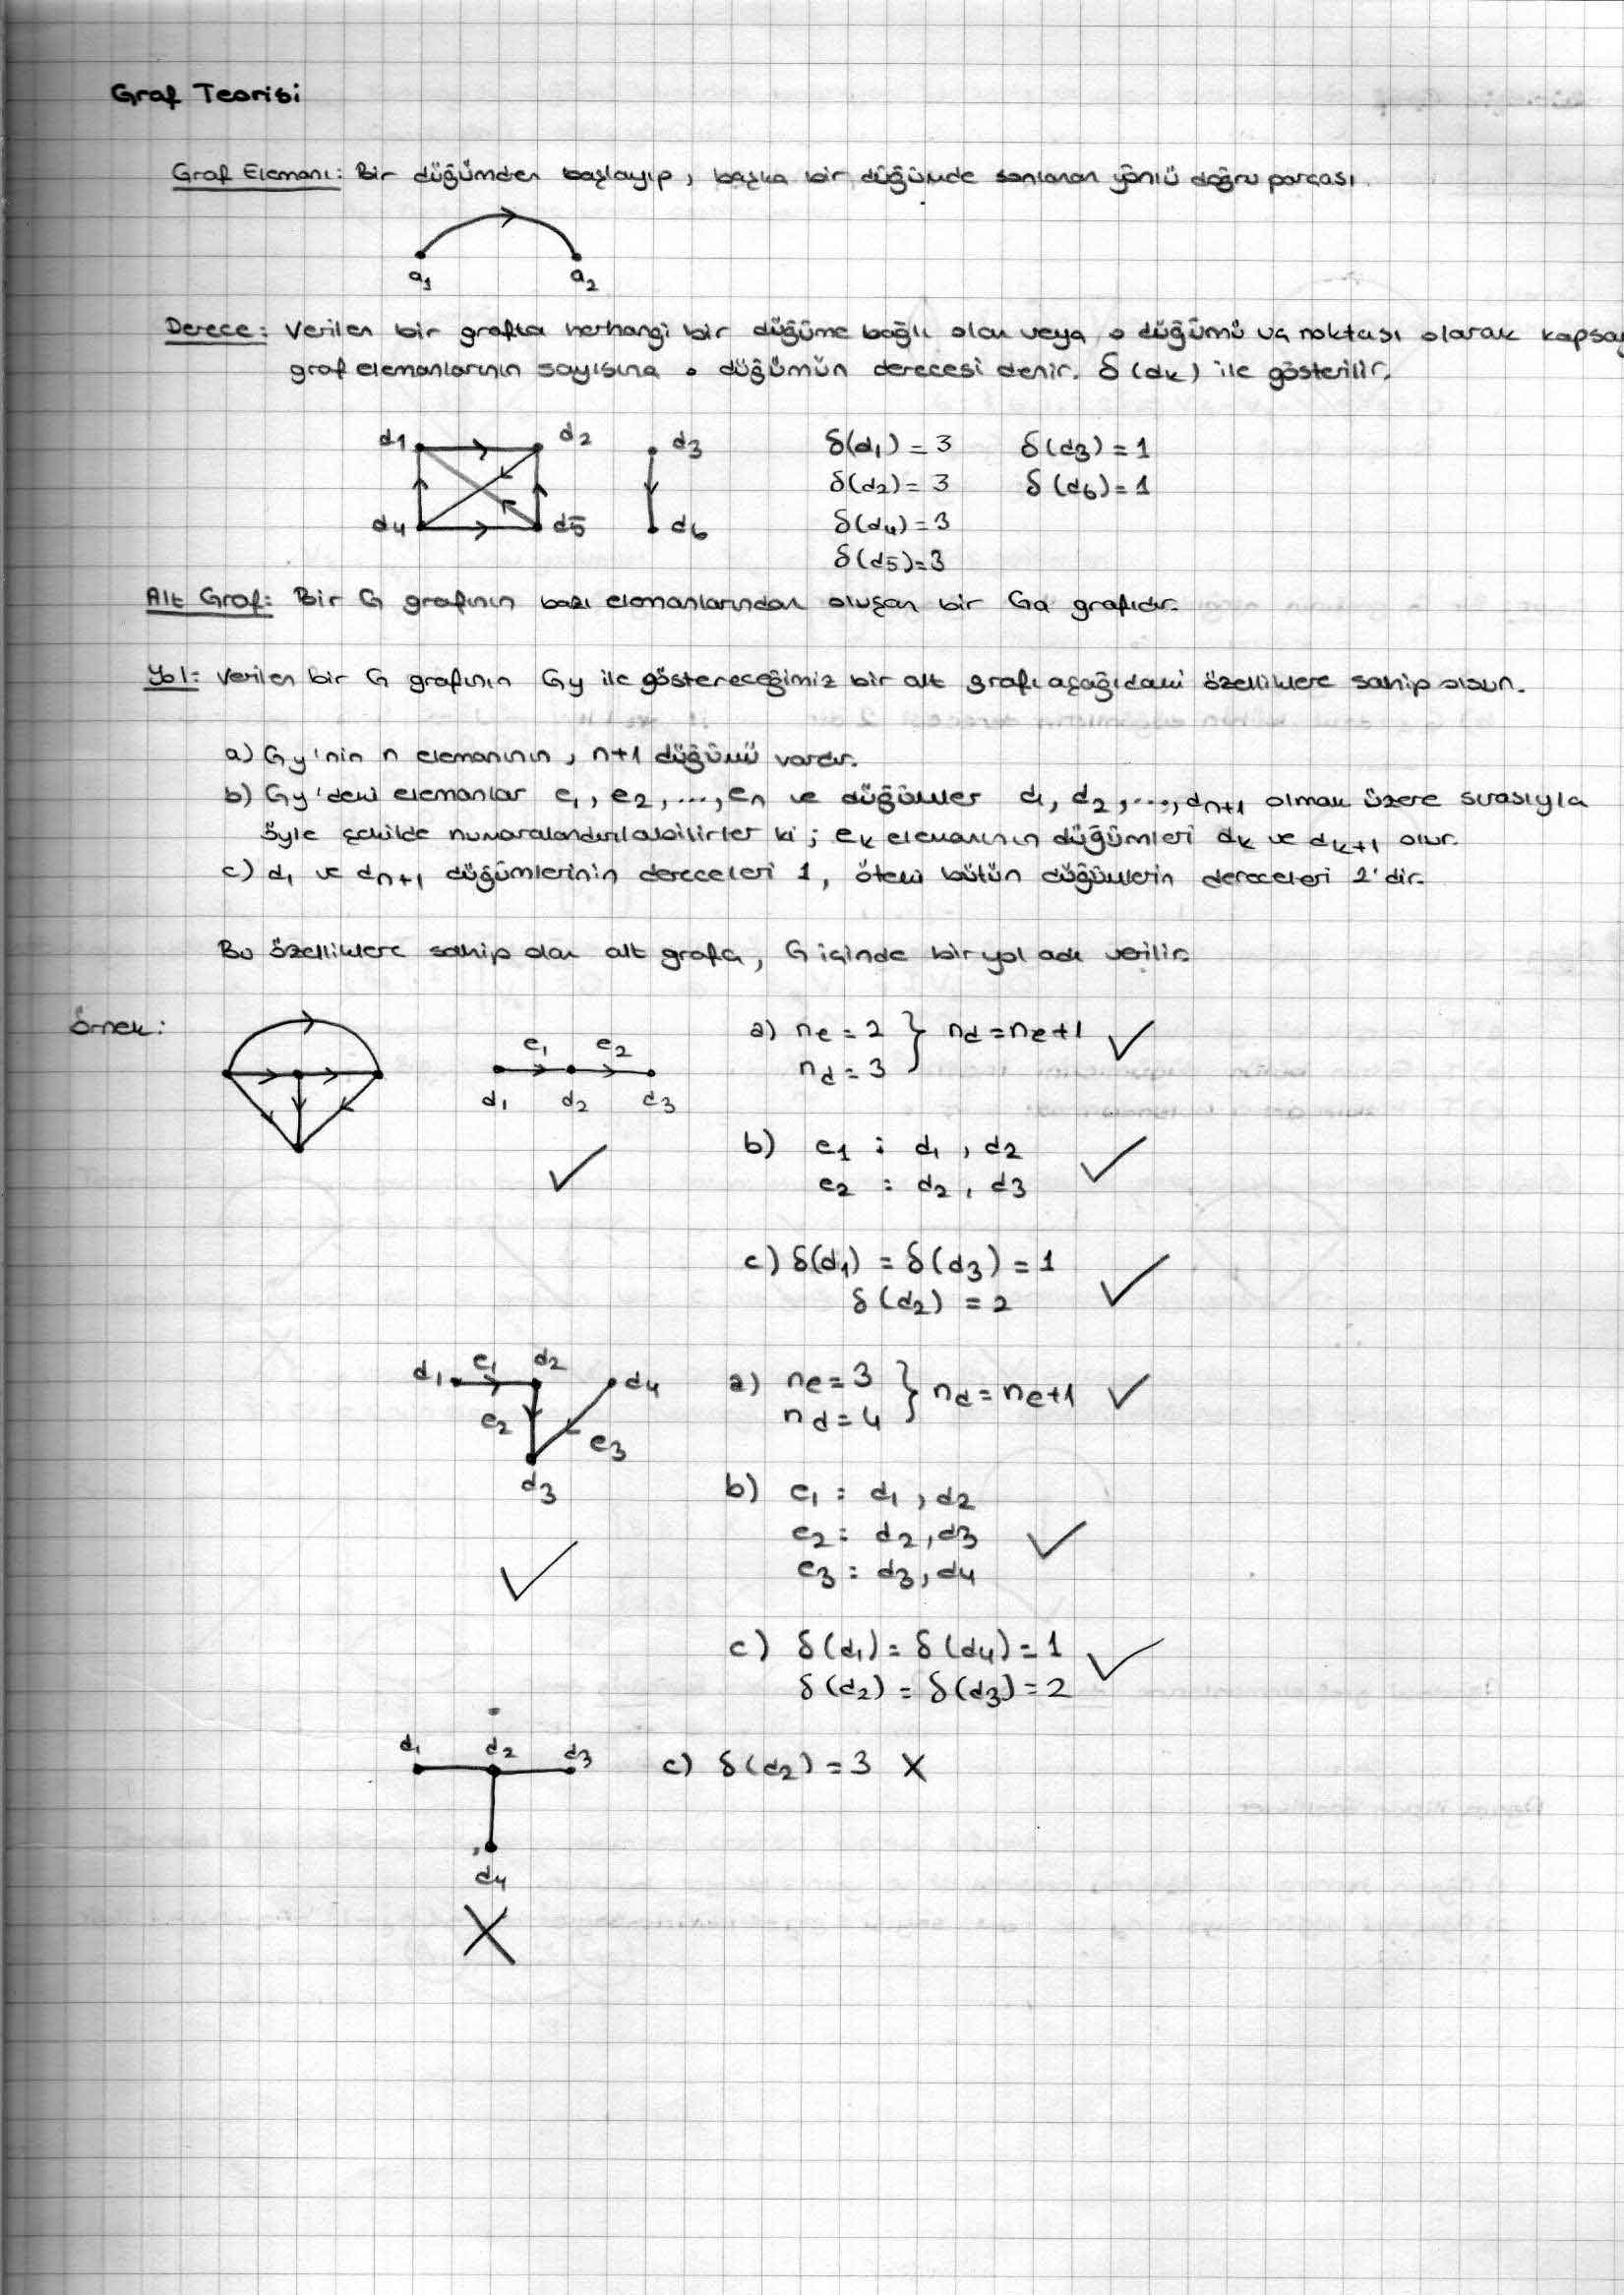 Graf Teorisi
Graf Elemanı: Bir düğümden başlayıp, başka bir düğümde sonlanan yönlü doğru parçası.
a1 a2
Derece: Verilen bir grafta herhangi bir düğüme bağlı olan veya o düğümü uç noktası olarak kapsay
graf elemanlarının sayısına o düğümün derecesi denir. δ(dk) ile gösterilir.
d1 d2 d3 δ(d1) = 3 δ(d3) = 1
δ(d2) = 3 δ(d6) = 1
d4 d5 d6 δ(d4) = 3
δ(d5) = 3
Alt Graf: Bir G grafının bazı elemanlarından oluşan bir Ga grafıdır.
Yol: Verilen bir G grafının Gy ile göstereceğimiz bir alt grafı aşağıdaki özelliklere sahip olsun.
a) Gy'nin n elemanının, n+1 düğümü vardır.
b) Gy'deki elemanlar e1, e2, ..., en ve düğümler d1, d2, ..., dn+1 olmak üzere sırasıyla
öyle şekilde numaralandırılabilirler ki; ek elemanının düğümleri dk ve dk+1 olur.
c) d1 ve dn+1 düğümlerinin dereceleri 1, öteki bütün düğümlerin dereceleri 2'dir.
Bu özelliklere sahip olan alt grafa, G içinde bir yol adı verilir.
Örnek: a) ne = 2 } nd = ne+1 ✓
e1 e2 nd = 3
d1 d2 d3
b) e1 : d1, d2 ✓
✓ e2 : d2, d3
c) δ(d1) = δ(d3) = 1 ✓
δ(d2) = 2
d1 e1 d2 d4 a) ne = 3 } nd = ne+1 ✓
e2 e3 nd = 4
d3 b) e1 : d1, d2
e2 : d2, d3 ✓
✓ e3 : d3, d4
c) δ(d1) = δ(d4) = 1 ✓
δ(d2) = δ(d3) = 2
d1 d2 d3 c) δ(d2) = 3 X
d4
X